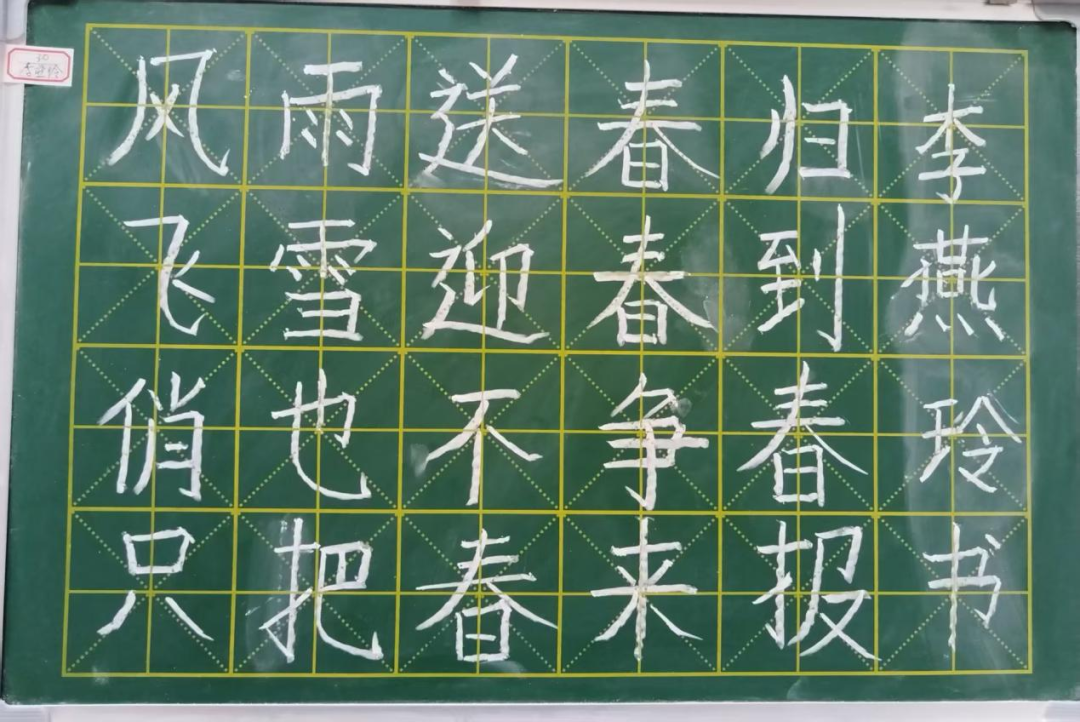 风雨送春归
飞雪迎春到
俏也不争春
只把春来报
李燕玲书